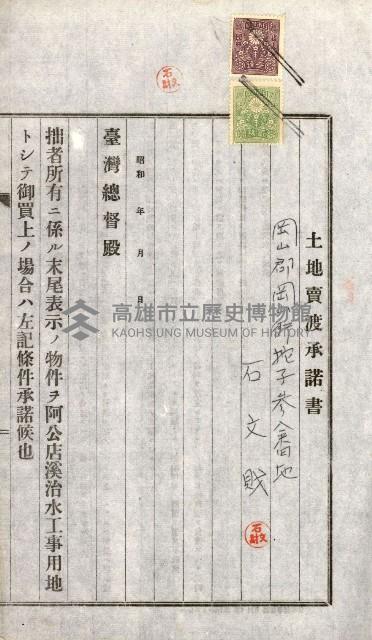 土地賣渡承諾書
岡山郡岡山街挖子參番地
石文戝
昭和 年 月 日
臺灣總督殿
拙者所有ニ係ル末尾表示ノ物件ヲ阿公店溪治水工事用地
トシテ御買上ノ場合ハ左記條件承諾候也
高雄市立歷史博物館
KAOHSIUNG MUSEUM OF HISTORY